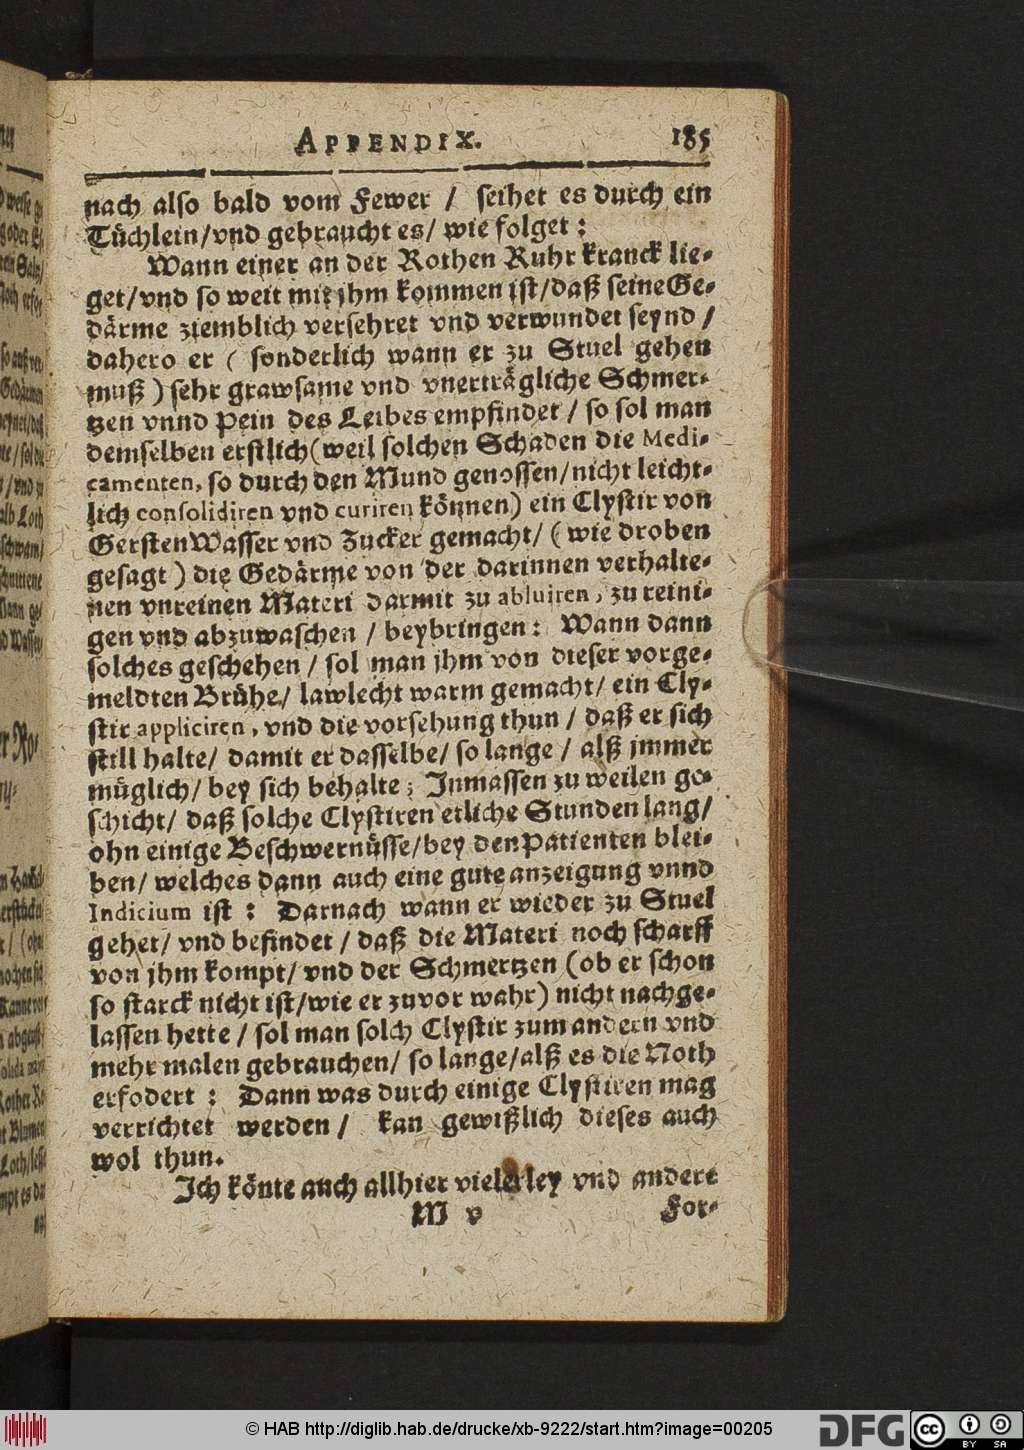 APPENDIX. 185
nach also bald vom Fewer / seihet es durch ein
Tüchlein/vnd gebraucht es/ wie folget:
Wann einer an der Rothen Ruhr kranck lie-
get/vnd so weit mit jhm kommen ist/daß seine Ge-
därme ziemblich versehret vnd verwundet seynd /
dahero er ( sonderlich wann er zu Stuel gehen
muß ) sehr grawsame vnd vnerträgliche Schmer-
tzen vnnd Pein des Leibes empfindet / so sol man
demselben erstlich (weil solchen Schaden die Medi-
camenten, so durch den Mund genossen/nicht leicht-
lich consolidiren vnd curiren können) ein Clystir von
Gersten Wasser vnd Zucker gemacht/ ( wie droben
gesagt ) die Gedärme von der darinnen verhalte-
nen vnreinen Materi darmit zu abluiren, zu reini-
gen vnd abzuwaschen / beybringen: Wann dann
solches geschehen / sol man jhm von dieser vorge-
meldten Brühe/ lawlecht warm gemacht/ ein Cly-
stir appliciren, vnd die vorsehung thun / daß er sich
still halte/ damit er dasselbe/ so lange / alß jmmer
müglich/ bey sich behalte; Inmassen zu weilen ge-
schicht/ daß solche Clystiren etliche Stunden lang/
ohn einige Beschwernüsse/bey den Patienten blei-
ben/ welches dann auch eine gute anzeigung vnnd
Indicium ist : Darnach wann er wieder zu Stuel
gehet/ vnd befindet / daß die Materi noch scharff
von jhm kompt/ vnd der Schmertzen (ob er schon
so starck nicht ist/wie er zuvor wahr) nicht nachge-
lassen hette / sol man solch Clystir zum andern vnd
mehr malen gebrauchen/ so lange/alß es die Noth
erfodert : Dann was durch einige Clystiren mag
verrichtet werden / kan gewißlich dieses auch
wol thun.
Ich könte auch allhier vielerley vnd andere
M v For-
© HAB http://diglib.hab.de/drucke/xb-9222/start.htm?image=00205
DFG
cc BY SA